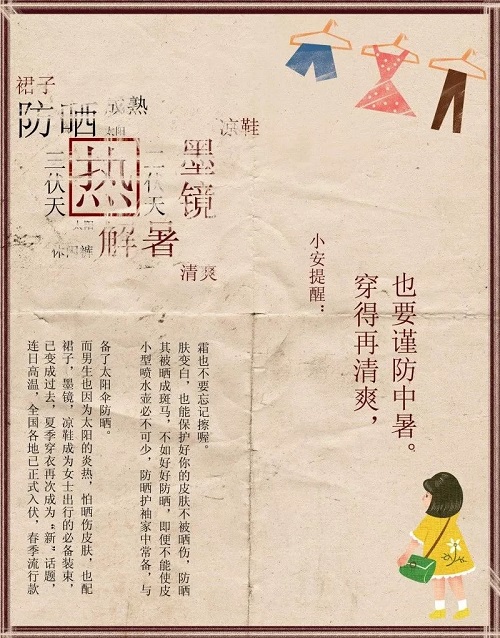 裙子
防晒
熟
太阳
凉鞋
三伏天
热
伏天
墨镜
太阳
休闲裤
解暑
清爽
小安提醒：
穿得再清爽，
也要谨防中暑。
连日高温，全国各地已正式入伏，春季流行款
已变成过去，夏季穿衣再次成为“新”话题，
裙子，墨镜，凉鞋成为女士出行的必备装束，
而男生也因为太阳的炎热，怕晒伤皮肤，也配
备了太阳伞防晒。
小型喷水壶必不可少，防晒护袖家中常备，与
其被晒成斑马，不如好好防晒，即便不能使皮
肤变白，也能保护好你的皮肤不被晒伤，防晒
霜也不要忘记擦喔。